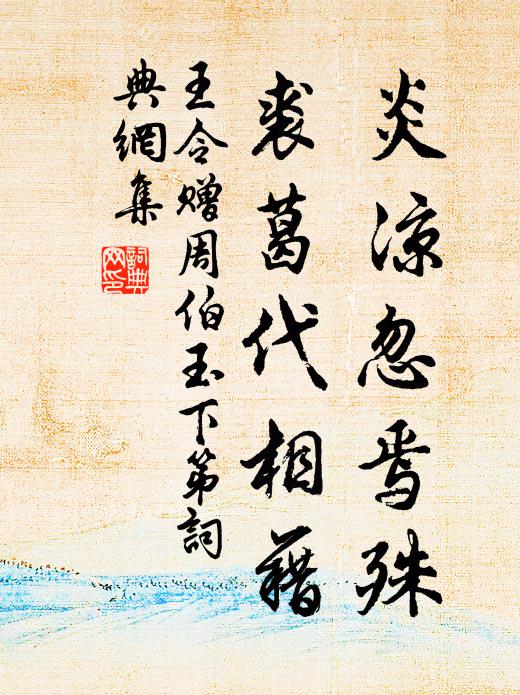 炎涼忽焉殊
裘葛代相藉
王令贈周伯玉下第詞
典網集
詞典网印